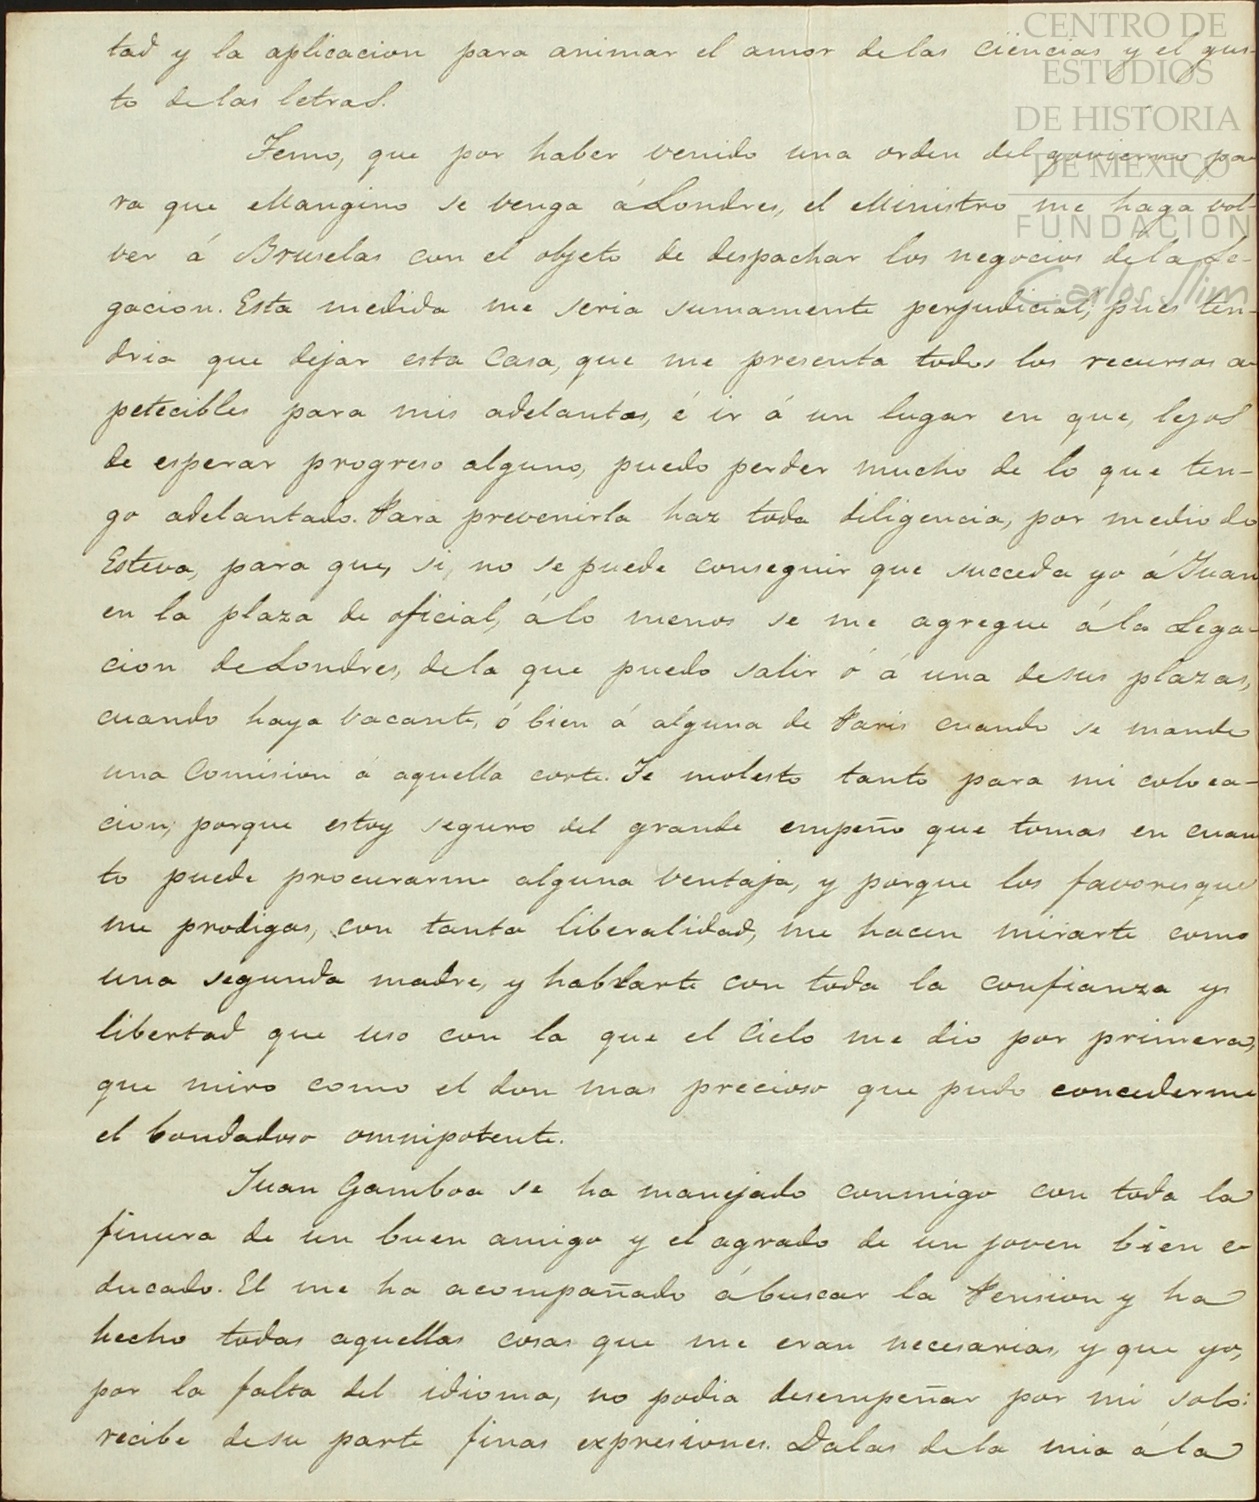 CENTRO DE
ESTUDIOS
DE HISTORIA
DE MÉXICO
FUNDACIÓN
Carlos Slim
tad y la aplicacion para animar el amor de las ciencias y el gus-
to de las letras.
Temo, que por haber venido una orden del govierno pa-
ra que Mangino se venga á Londres, el Ministro me haga vol-
ver á Bruselas con el objeto de despachar los negocios de la Le-
gacion. Esta medida me seria sumamente perjudicial; pues ten-
dria que dejar esta Casa, que me presenta todos los recursos a-
petecibles para mis adelantos, é ir á un lugar en que, lejos
de esperar progreso alguno, puedo perder mucho de lo que ten-
go adelantado. Para prevenirla haz toda diligencia, por medio de
Esteva, para que, si, no se puede conseguir que succeda yo á Juan
en la plaza de oficial, á lo menos se me agregue á la Lega-
cion de Londres, de la que puedo salir ó á una de sus plazas,
cuando haya vacante, ó bien á alguna de Paris cuando se mande
una Comision á aquella corte. Te molesto tanto para mi coloca-
cion, porque estoy seguro del grande empeño que tomas en cuan
to puede procurarme alguna ventaja, y porque los favores que
me prodigas, con tanta liberalidad, me hacen mirarte como
una segunda madre, y hablarte con toda la confianza y
libertad que uso con la que el Cielo me dio por primera,
que miro como el don mas precioso que pudo concederme
el bondadoso omnipotente.
Juan Gamboa se ha manejado conmigo con toda la
finura de un buen amigo y el agrado de un joven bien e-
ducado. El me ha acompañado á buscar la Pension y ha
hecho todas aquellas cosas que me eran necesarias, y que yo,
por la falta del idioma, no podia desempeñar por mi solo:
recibe de su parte finas expresiones. Dalas de la mia á la